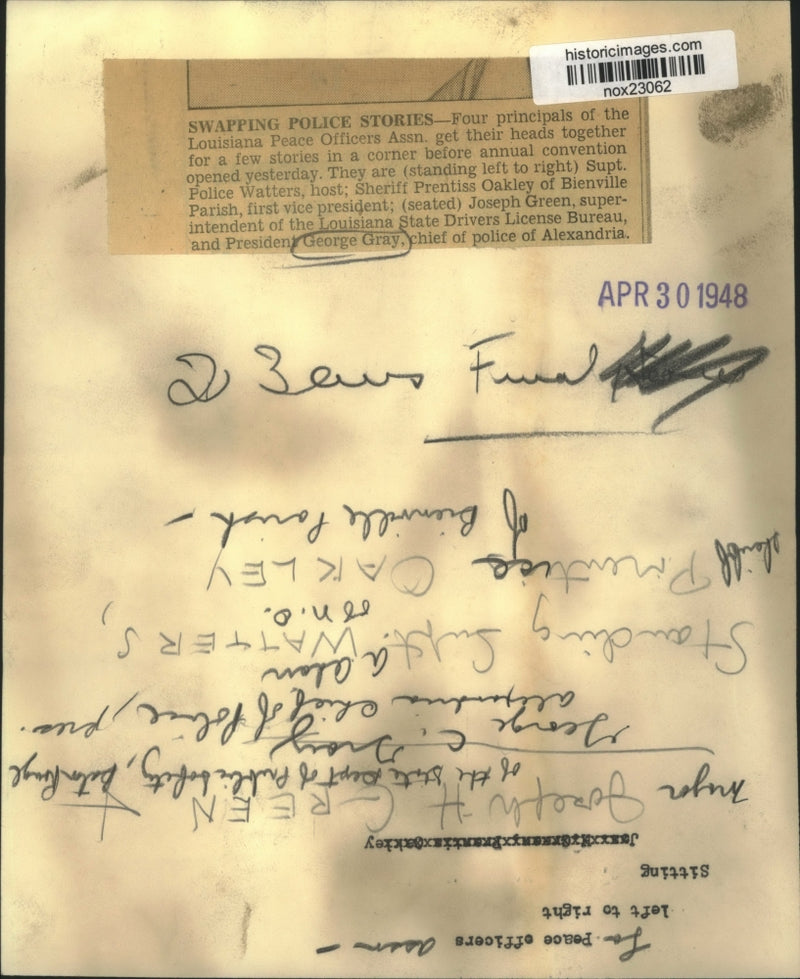 historicimages.com
nox23062
SWAPPING POLICE STORIES—Four principals of the
Louisiana Peace Officers Assn. get their heads together
for a few stories in a corner before annual convention
opened yesterday. They are (standing left to right) Supt.
Police Watters, host; Sheriff Prentiss Oakley of Bienville
Parish, first vice president; (seated) Joseph Green, super-
intendent of the Louisiana State Drivers License Bureau,
and President George Gray, chief of police of Alexandria.
APR 30 1948
La Peace officers assn —
left to right
Sitting
Joseph H GREEN
of the State Dept of Public Safety, Baton Rouge
George C. Gray
Alexandria Chief of Police, pres.
Standing Supt. WATTERS,
of N.O.
Sheriff Prentiss OAKLEY
of Bienville Parish —